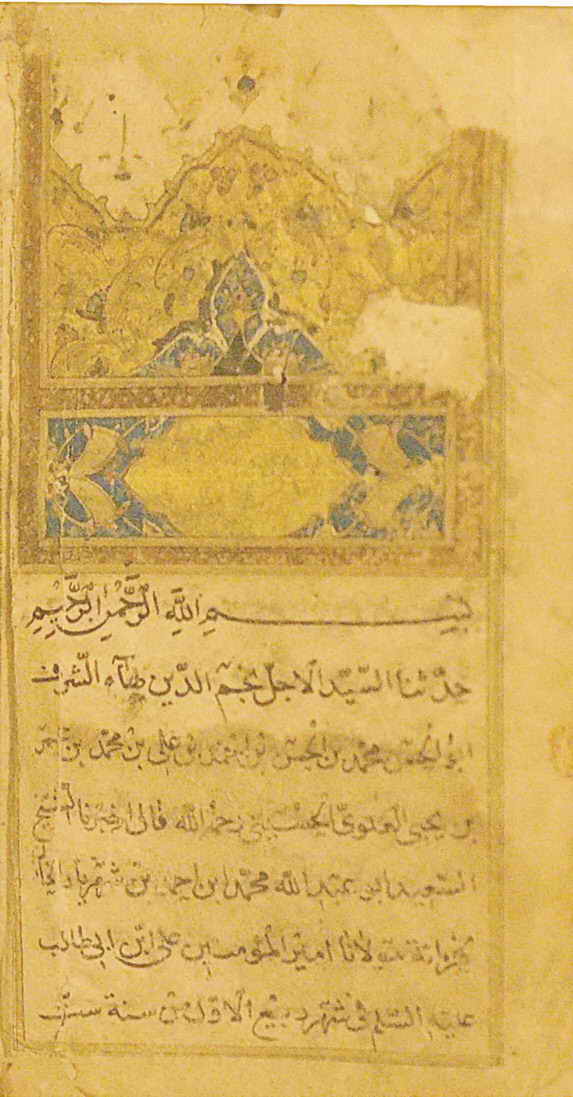 بسم الله الرحمن الرحيم
حدّثنا السّيّد الاجلّ نجم الدّين بهآء الشّرف
ابو الحسن محمّد بن الحسن بن احمد بن على بن محمّد بن عمر
بن يحيى العلوىّ الحسينىّ رحمه الله قال اخبرنا الشيخ
السّعيد ابو عبد الله محمّد ابن احمد بن شهريار الخازن
لخزانة مولانا امير المؤمنين على ابن ابى طالب
عليه السّلم فى شهر ربيع الاوّل من سنة ستّ